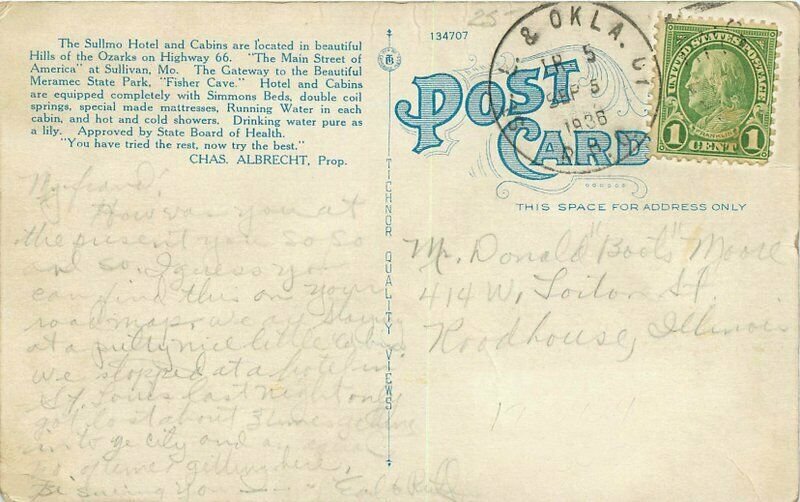 25
The Sullmo Hotel and Cabins are located in beautiful
Hills of the Ozarks on Highway 66. "The Main Street of
America" at Sullivan, Mo. The Gateway to the Beautiful
Meramec State Park, "Fisher Cave." Hotel and Cabins
are equipped completely with Simmons Beds, double coil
springs, special made mattresses, Running Water in each
cabin, and hot and cold showers. Drinking water pure as
a lily. Approved by State Board of Health.
"You have tried the rest, now try the best."
CHAS. ALBRECHT, Prop.
My friend,
How was you at
the present you so so
and so. I guess you
can find this on your
road map, we are staying
at a pretty nice little cabin
we stopped at a hotel in
St. Louis last night only
got lost about 3 times getting
in to
city and
getting here,
seeing you
TICHNOR QUALITY VIEWS
134707
POST
CARD
& OKLA. CY
SEP 5
1936
R.P.O.
UNITED STATES POSTAGE
FRANKLIN
1 CENT 1
THIS SPACE FOR ADDRESS ONLY
Mr. Donald "Boots" Moore
414 W. St.
Roodhouse, Illinois